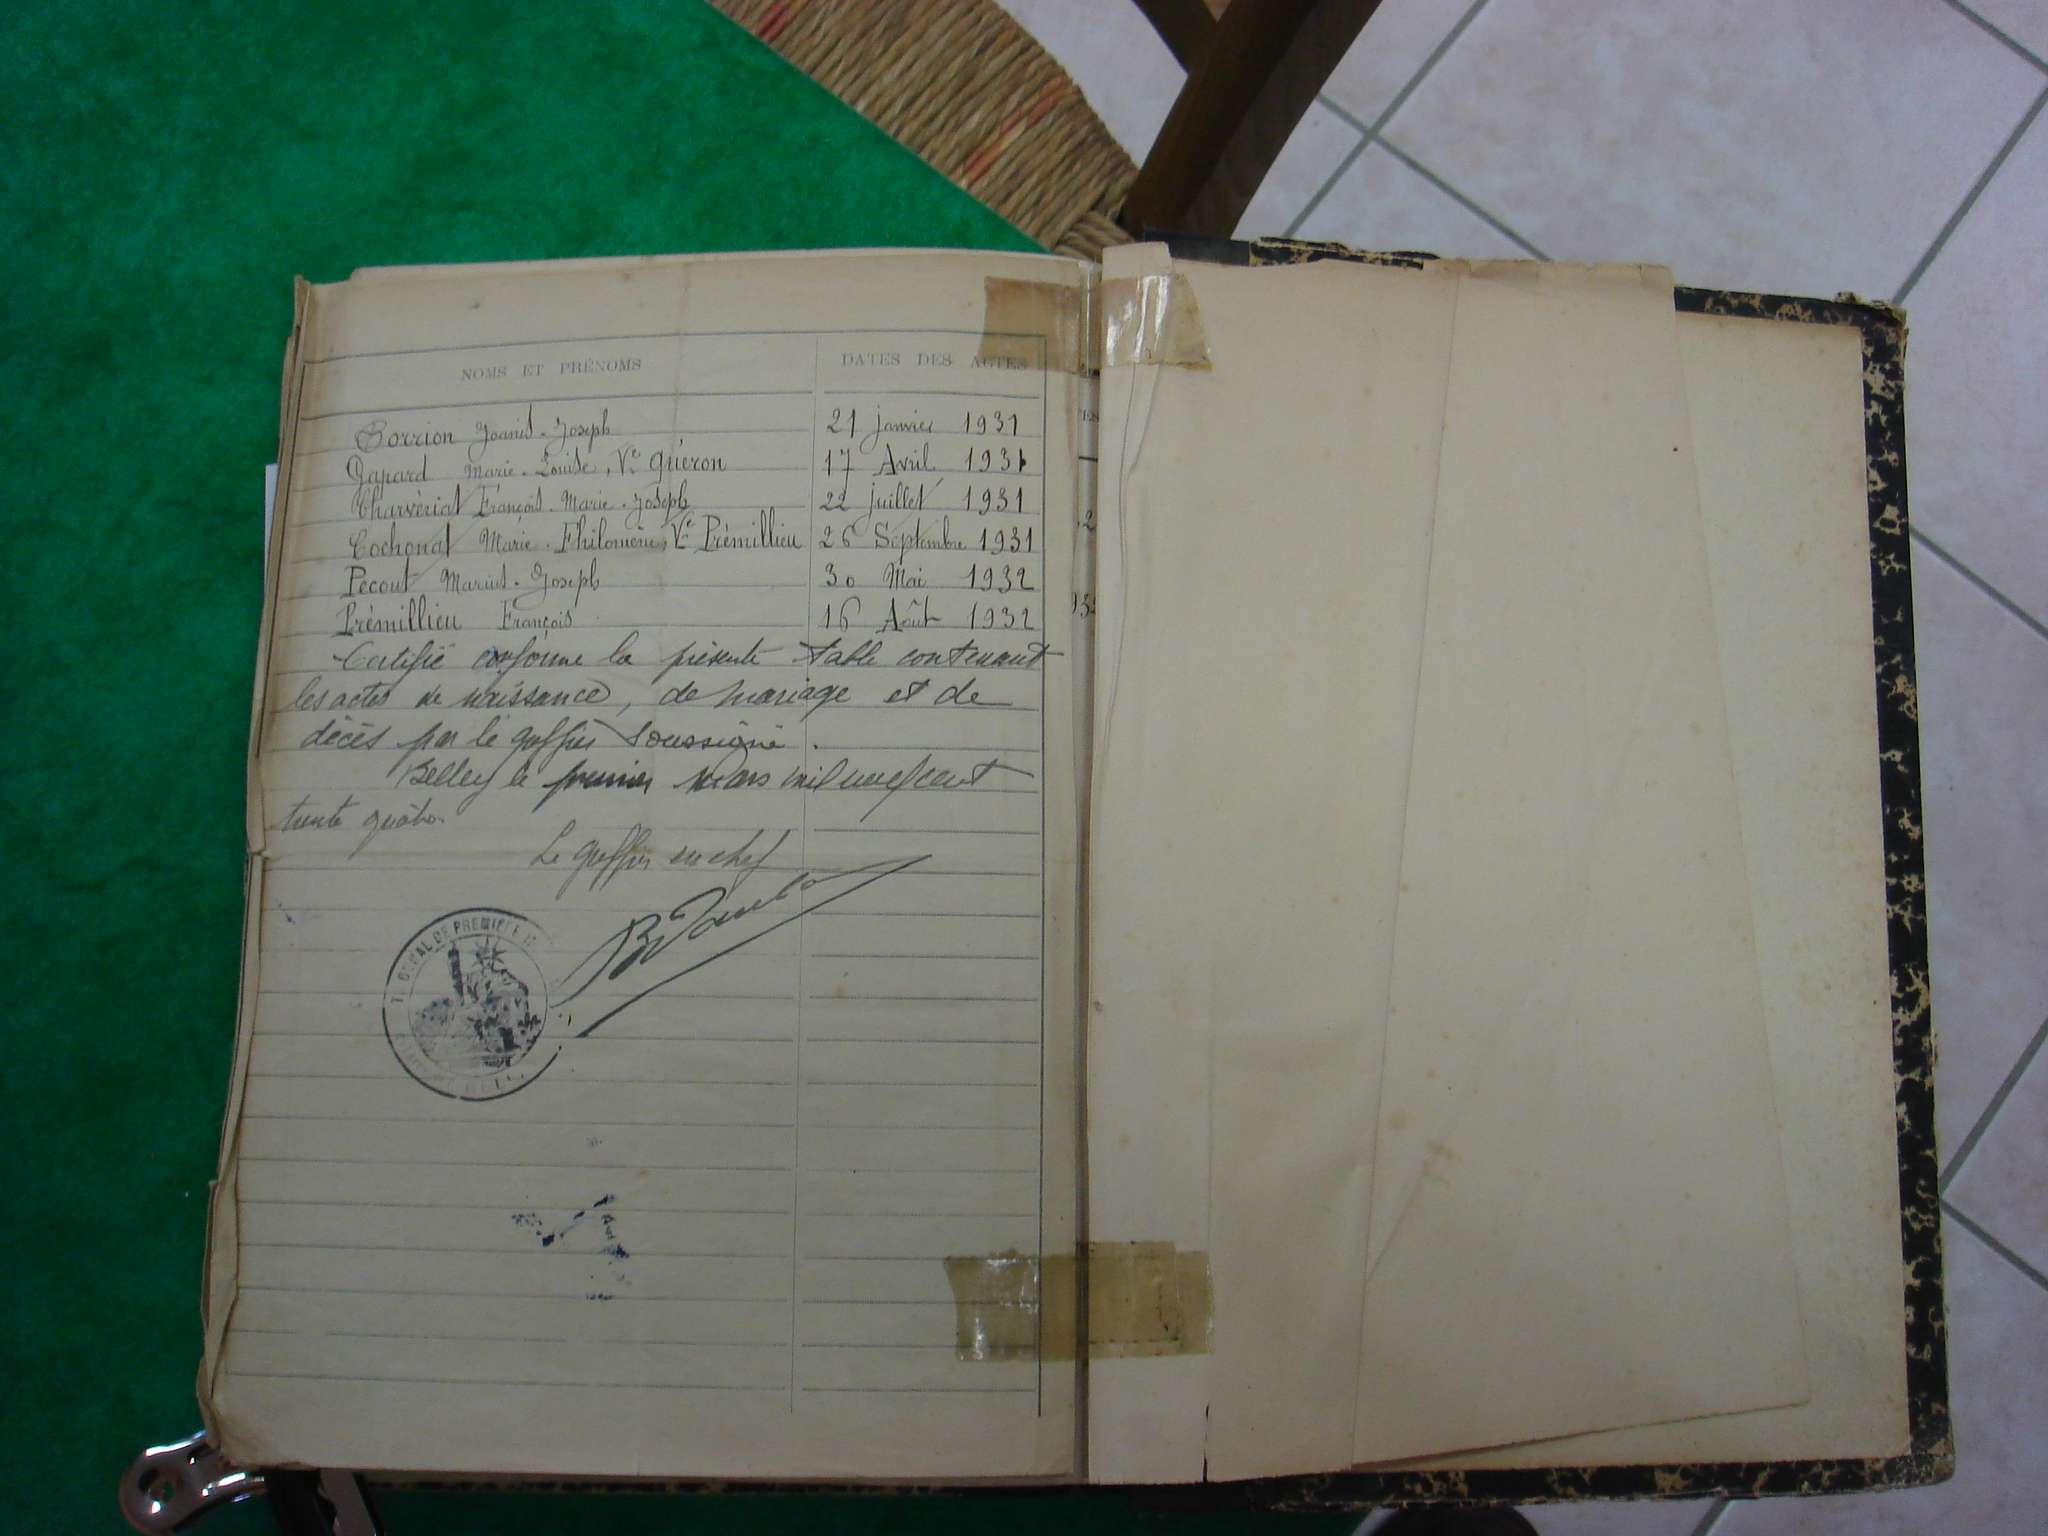 NOMS ET PRÉNOMS DATES DES ACTES
Borrion Joanis-Joseph 21 janvier 1931
Gapard Marie-Louise, Vve Guéron 17 Avril 1931
Charvériat François-Marie-Joseph 22 juillet 1931
Cochonat Marie-Philomène, Vve Prémillieu 26 Septembre 1931
Pecout Marius-Joseph 30 Mai 1932
Prémillieu François 16 Août 1932
Certifié conforme la présente table contenant
les actes de naissance, de mariage et de
décès par le greffier soussigné.
Belley le premier mars mil neuf cent
trente quatre
Le greffier en chef
TRIBUNAL DE PREMIERE